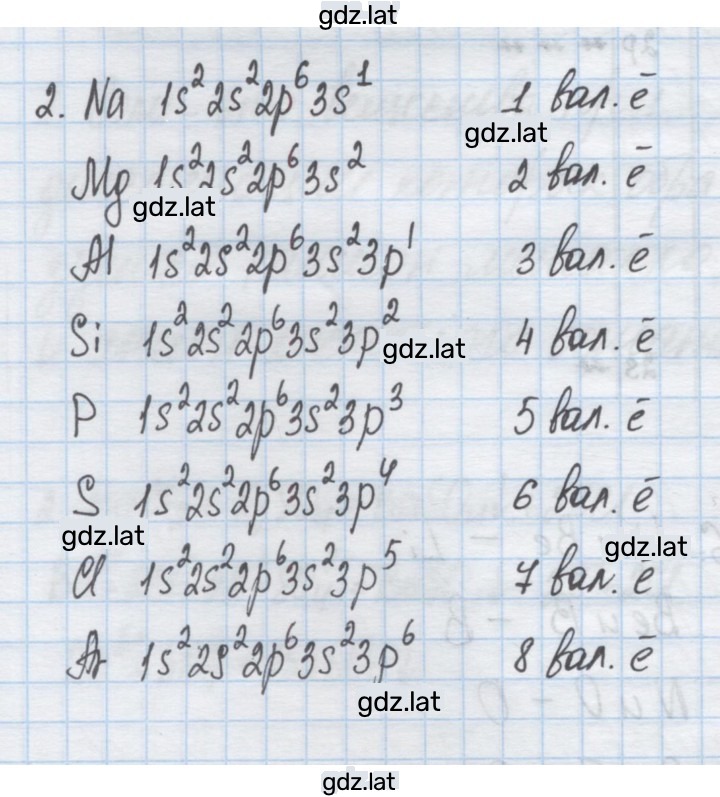 gdz.lat
2. Na 1s²2s²2p⁶3s¹ 1 вал. ē
gdz.lat
Mg 1s²2s²2p⁶3s² 2 вал. ē
gdz.lat
Al 1s²2s²2p⁶3s²3p¹ 3 вал. ē
Si 1s²2s²2p⁶3s²3p² 4 вал. ē
gdz.lat
P 1s²2s²2p⁶3s²3p³ 5 вал. ē
S 1s²2s²2p⁶3s²3p⁴ 6 вал. ē
gdz.lat
gdz.lat
Cl 1s²2s²2p⁶3s²3p⁵ 7 вал. ē
Ar 1s²2s²2p⁶3s²3p⁶ 8 вал. ē
gdz.lat
gdz.lat